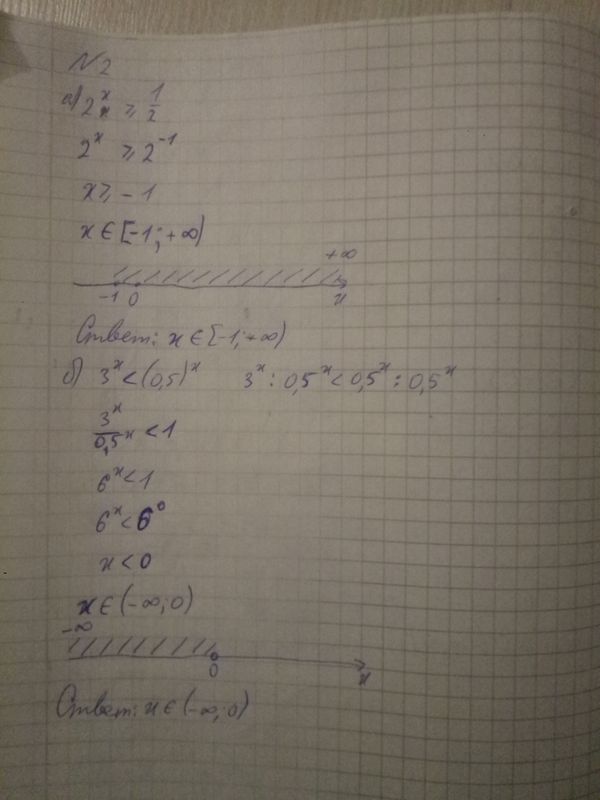 N2
а) 2^x ≥ 1/2
2^x ≥ 2^-1
x ≥ -1
x ∈ [-1; +∞)
+∞
-1 0 x
Ответ: x ∈ [-1; +∞)
б) 3^x < (0,5)^x 3^x : 0,5^x < 0,5^x : 0,5^x
3^x / 0,5^x < 1
6^x < 1
6^x < 6^0
x < 0
x ∈ (-∞; 0)
-∞
0 x
Ответ: x ∈ (-∞; 0)